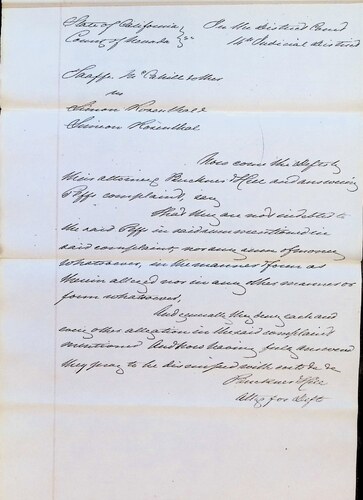 State of California } In the District Court
County of Nevada } ss 14th Judicial District
McCahill & others
vs
Simon Rosenthal &
Simon Rosenthal
Now come the Defts by
their attorneys Buckner & Hill and answering
Plffs complaint, say
That they are not indebted to
the said Plff in said sum mentioned in
said complaint, nor any sum of money
whatsoever, in the manner & form as
therein alleged nor in any other manner or
form whatsoever,
And generally they deny each and
every other allegation in the said complaint
mentioned And now having fully answered
they pray to be dismissed with costs &c &c
Buckner & Hill
Attys for Defts